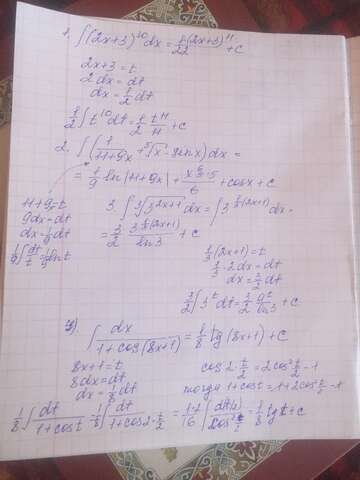 1. ∫(2x+3)^10 dx = 1/22 (2x+3)^11 + c
2x+3=t
2dx=dt
dx=1/2 dt
1/2 ∫t^10 dt = 1/2 t^11/11 + c
2. ∫(1/(11+9x) + ⁵√x - sinx)dx =
= 1/9 ln|11+9x| + x^(6/5)·5/6 + cosx + c
11+9x=t
9dx=dt
dx=1/9 dt
1/9 ∫dt/t = 1/9 lnt
3. ∫ ³√(3^(2x+1)) dx = ∫3^(1/3(2x+1)) dx =
= 3/2 3^(1/3(2x+1))/ln3 + c
1/3(2x+1)=t
1/3·2dx=dt
dx=3/2 dt
3/2 ∫3^t dt = 3/2 3^t/ln3 + c
∫dx/(1+cos(8x+1)) = 1/8 tg(8x+1) + c
8x+1=t
8dx=dt
dx=1/8 dt
cos2·t/2=2cos²t/2-1
тогда 1+cost=1+2cos²t/2-1
1/8 ∫dt/(1+cost) = 1/8 ∫dt/(1+cos2·t/2) =